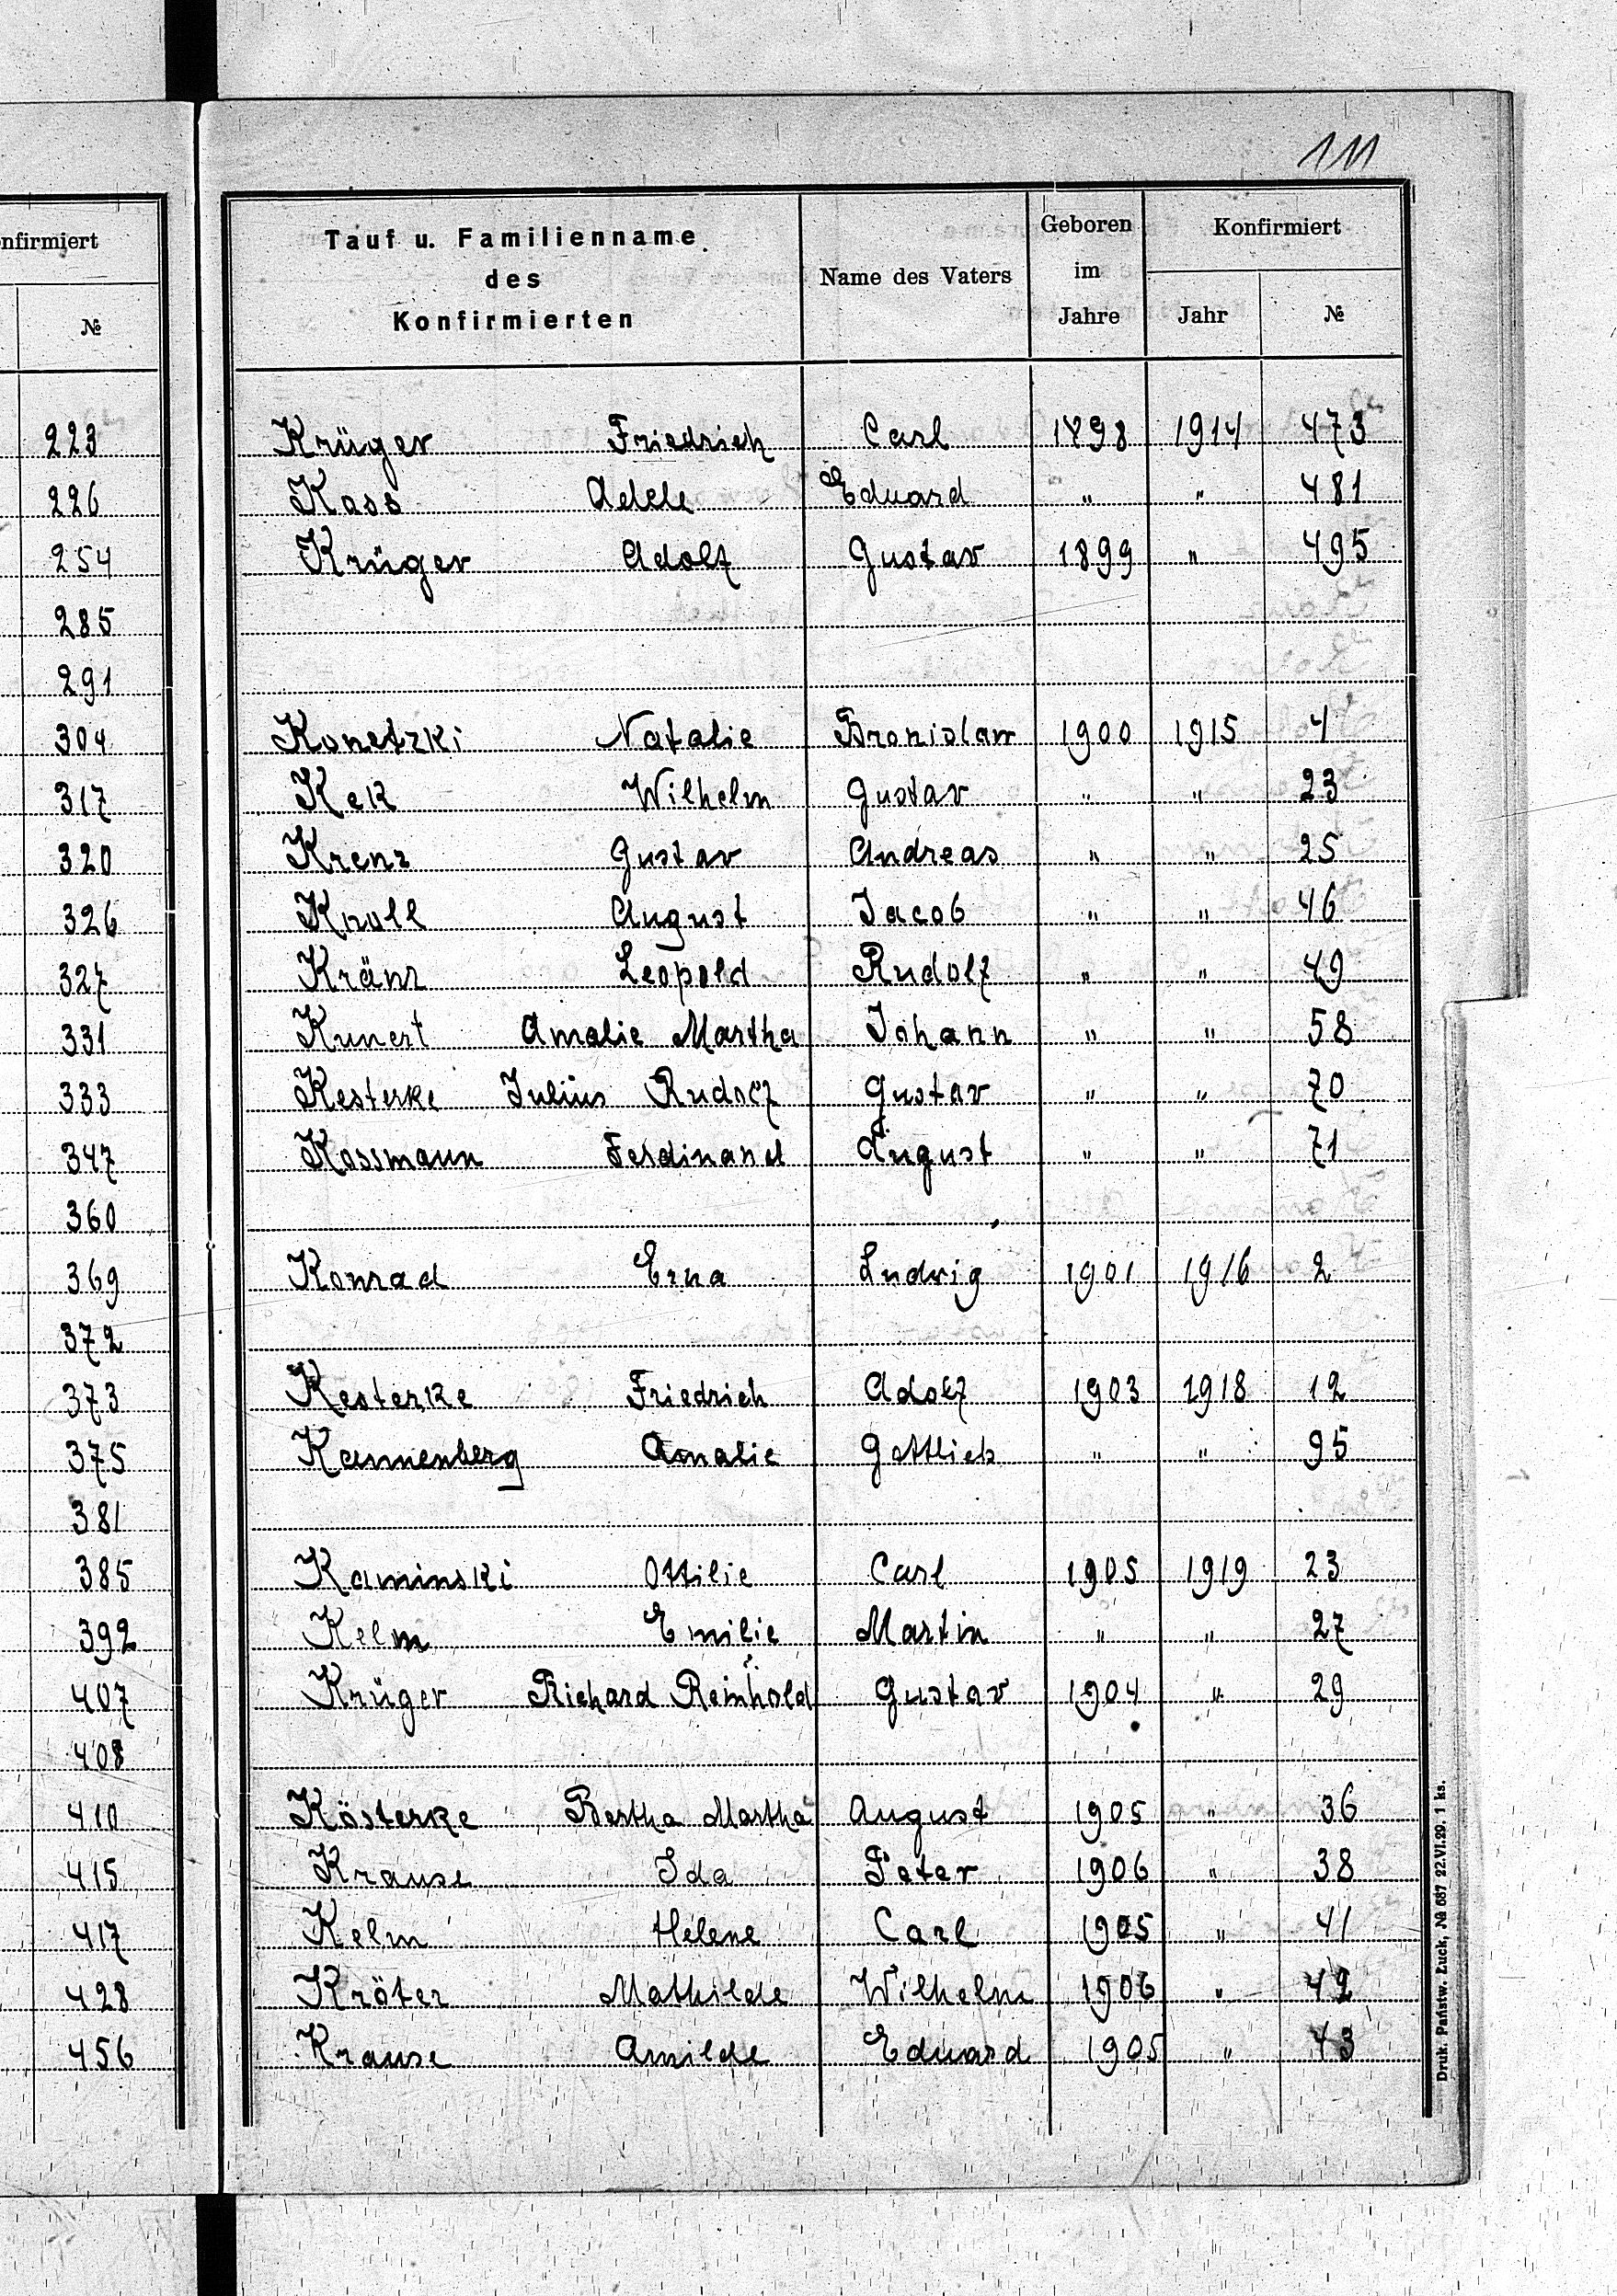 111
nfirmiert
№
223
226
254
285
291
304
317
320
326
327
331
333
347
360
369
372
373
375
381
385
392
407
408
410
415
417
428
456
Tauf u. Familienname
des
Konfirmierten
Name des Vaters
Geboren
im
Jahre
Konfirmiert
Jahr
№
Krüger Friedrich Carl 1898 1914 473
Kass Adele Eduard " " 481
Krüger Adolf Gustav 1899 " 495
Konetzki Natalie Bronislaw 1900 1915 4
Kek Wilhelm Gustav " " 23
Krenz Gustav Andreas " " 25
Kroll August Jacob " " 46
Kränz Leopold Rudolf " " 49
Kunert Amalie Martha Johann " " 58
Kesterke Julius Rudolf Gustav " " 70
Kossmann Ferdinand August " " 71
Konrad Erna Ludwig 1901 1916 2
Kesterke Friedrich Adolf 1903 1918 12
Kannenberg Amalie Gottlieb " " 95
Kaminski Ottilie Carl 1905 1919 23
Kelm Emilie Martin " " 27
Krüger Richard Reinhold Gustav 1904 " 29
Kösterke Bertha Martha August 1905 " 36
Krause Ida Peter 1906 " 38
Kelm Helene Carl 1905 " 41
Kröter Mathilde Wilhelm 1906 " 42
Krause Amilde Eduard 1905 " 43
Druk. Państw. Łuck, № 687 22.VI.29. 1 ks.